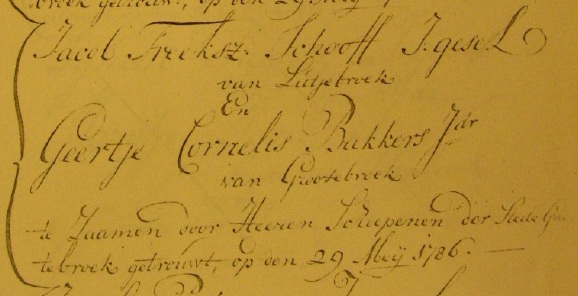 broek getrouwt, op den 29 Meij
Jacob Freeksz: Schooff J:gesel
van Lutjebroek
En
Geertje Cornelis Bakkers Jdr
van Grootebroek
te Zaamen voor Heeren Scheepenen der Stede
tebroek getrouwt, op den 29 Meij 1786.